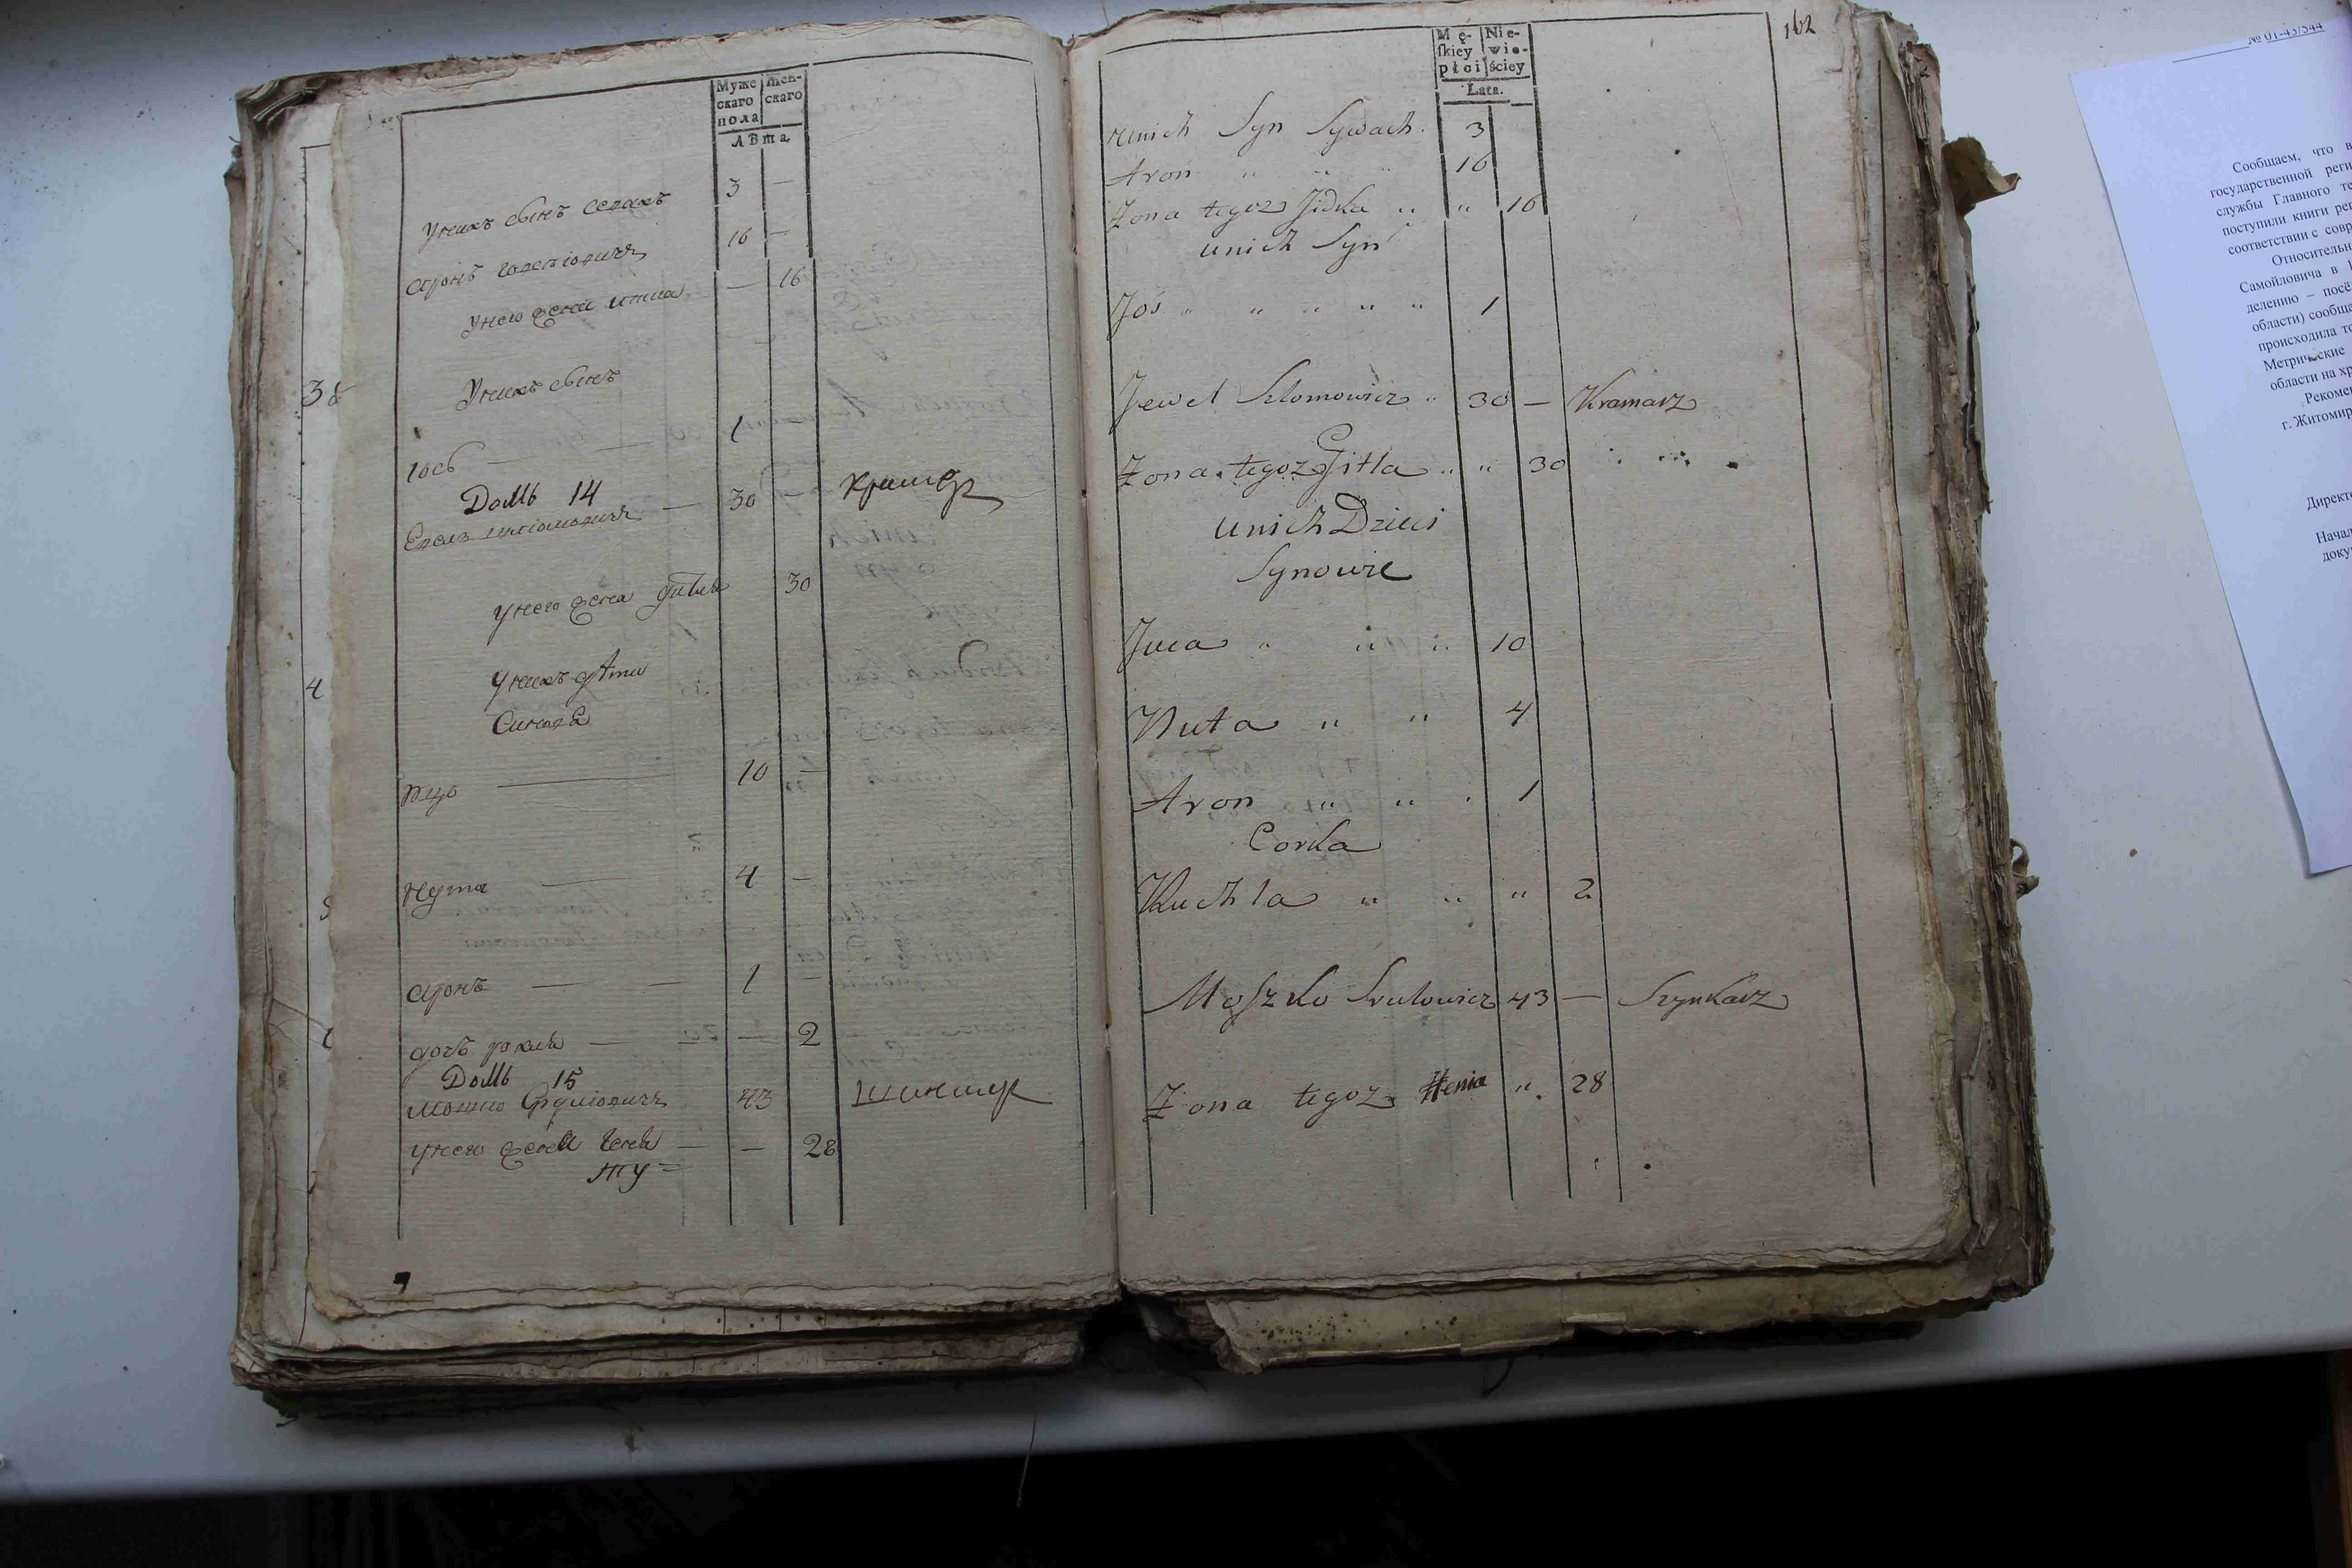 Муже
скаго
пола
Жен-
скаго
Лѣта
у нихъ сынъ
3 —
Аронъ
16 —
у него жена
— 16
у нихъ сынъ
38
Іось — — 1
Домъ 14
— 30 крамар
у него жена Гитля 30
4
у нихъ дѣти
Синовѣ
10 —
Нута — 4 —
Аронъ — — 1 —
дочь рохля — — — 2
Домъ 15
Мошко Срулiовичъ 43 шинкар
у него жена Геня — — 28
ту =
162
Mę-
ſkiey
płci
Nie-
wie-
ściey
Lata.
unich Syn Sywach. 3
Aron " " " 16
Zona tegoz Jidka " " 16
unich Syn
Jos " " " " " 1
Jewel Szlomowicz " 30 — Kramarz
Zona tegoz Gitla " " 30
unich Dzieci
Synowie
Juca " " " 10
Nuta " " 4
Aron " " 1
Corka
Ruchla " " " 2
Moszko Srulowicz 43 — Szynkarz
Zona tegoz Henia " 28
№ 01-43/544
Сообщаем, что в
государственной реги
службы Главного те
поступили книги рег
соответствии с совр
Относительн
Самойловича в 1
делению – посё
области) сообща
происходила то
Метрические
области на хр
Рекоме
г. Житомир
Директо
Начал
доку